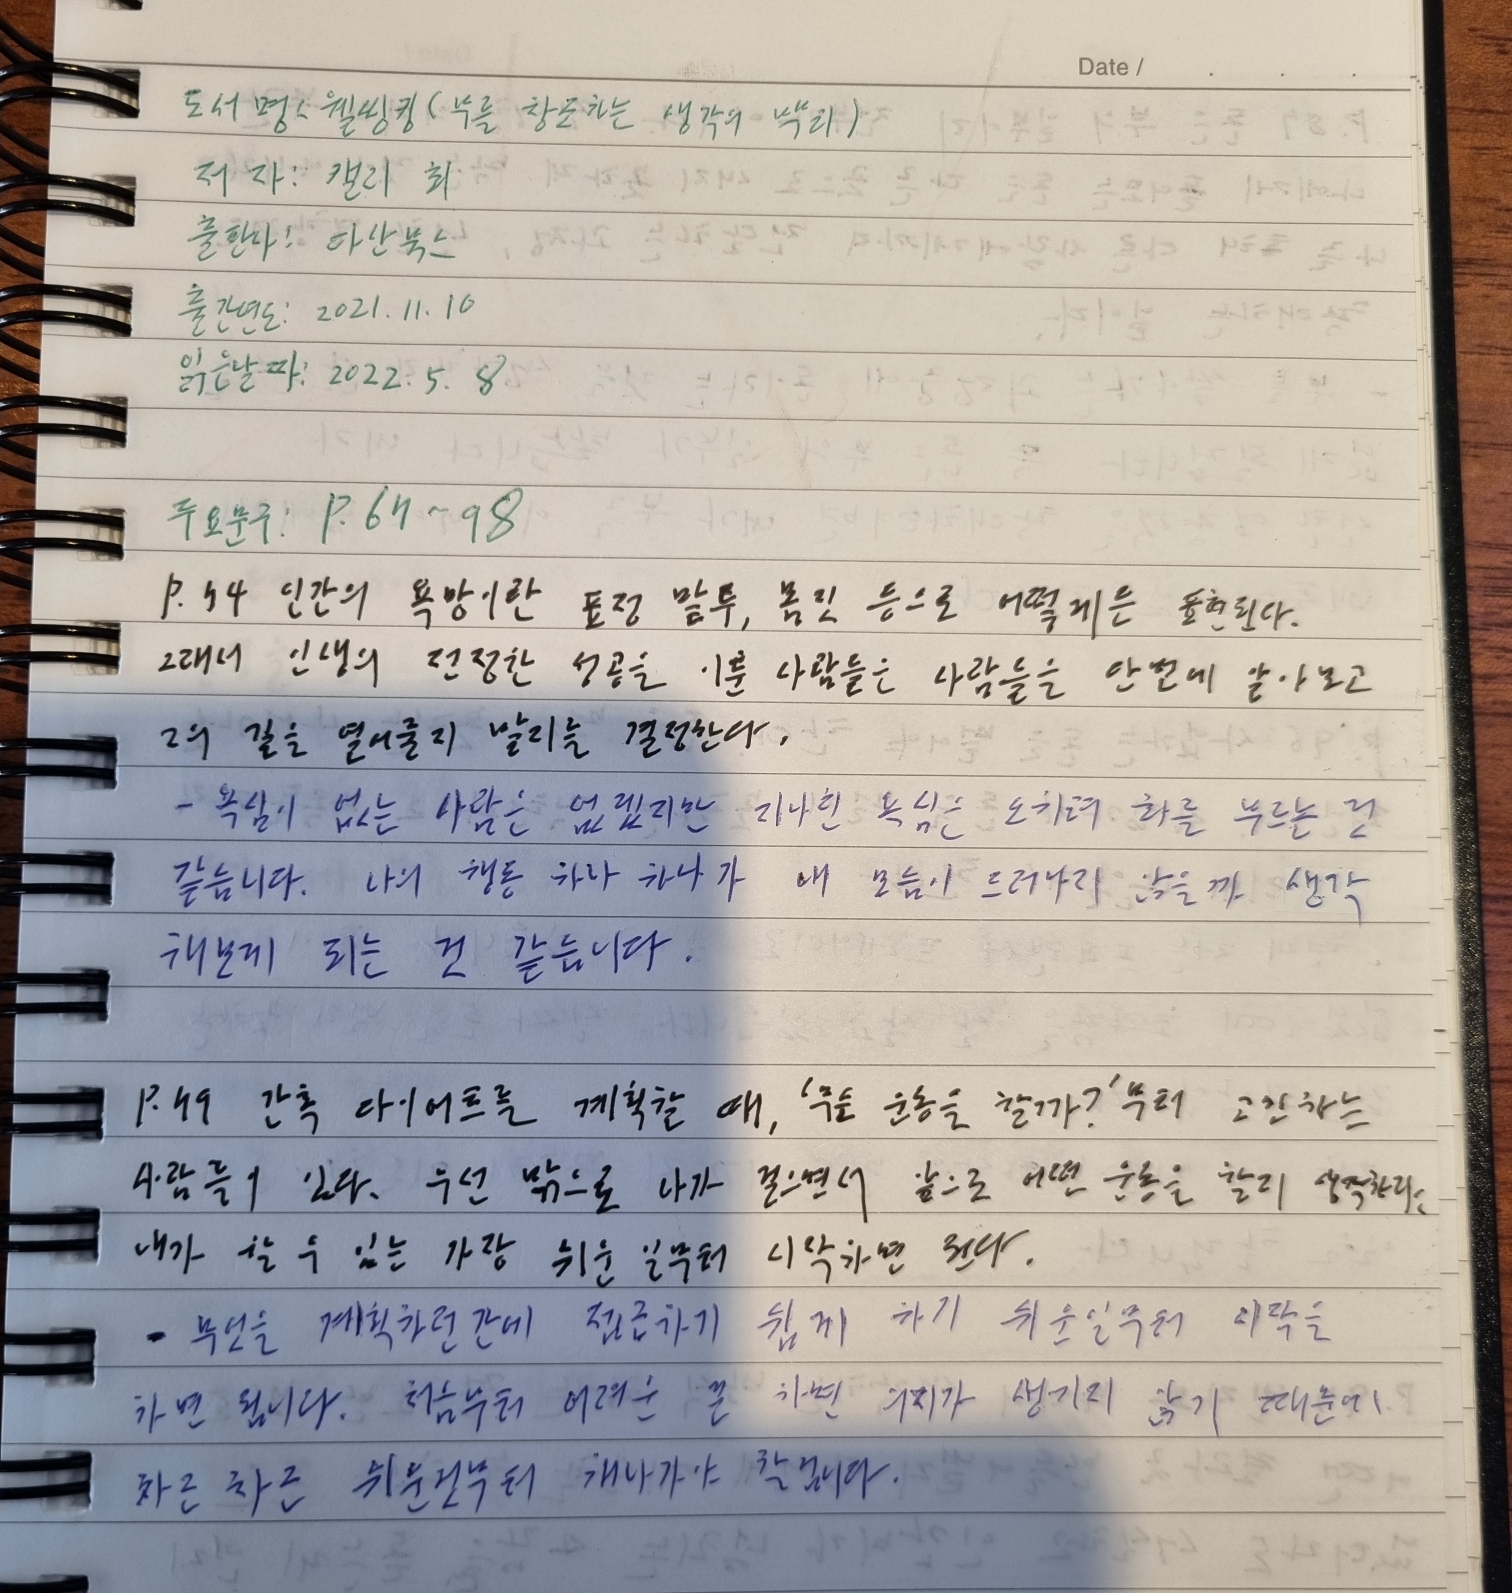 Date / . . .
도서명: 웰씽킹 (부를 창조하는 생각의 뿌리)
저 자: 캘리 최
출판사: 다산북스
출간연도: 2021.11.10
읽은날짜: 2022. 5. 8
주요문구: P. 64 ~ 98
P. 54 인간의 욕망이란 표정 말투, 몸짓 등으로 어떻게든 표현된다.
그래서 인생의 진정한 성공을 이룬 사람들은 사람들을 단번에 알아보고
그의 길을 열어줄지 말지를 결정한다.
- 욕심이 없는 사람은 없겠지만 지나친 욕심은 오히려 화를 부르는 것
같습니다. 나의 행동 하나 하나가 내 모습이 드러나지 않을까 생각
해보게 되는 것 같습니다.
P. 59 간혹 다이어트를 계획할 때, '무슨 운동을 할까?' 부터 고민하는
사람들이 있다. 우선 밖으로 나가 걸으면서 앞으로 어떤 운동을 할지 생각하라
내가 할 수 있는 가장 쉬운 일부터 시작하면 된다.
- 무엇을 계획하던간에 접근하기 쉽게 하기 쉬운일부터 시작을
하면 됩니다. 처음부터 어려운 걸 하면 의지가 생기지 않기 때문에
차근 차근 쉬운것부터 해나가야 할겁니다.